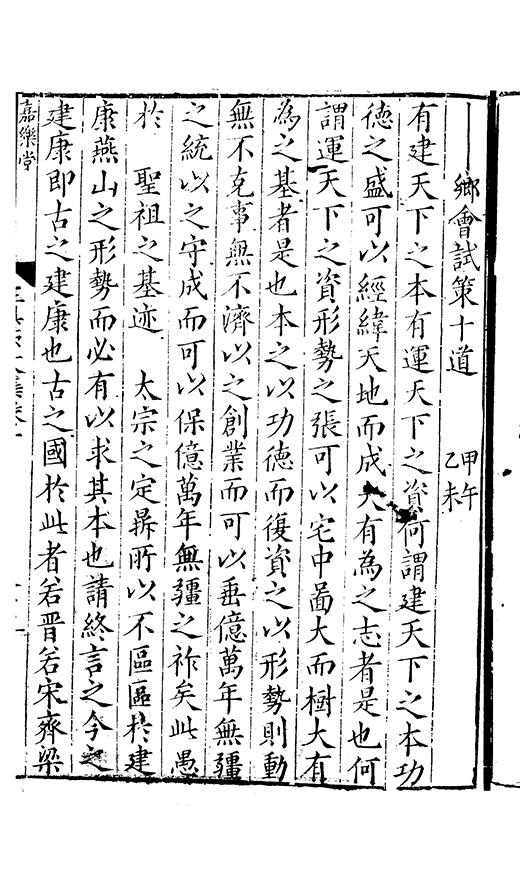 鄉會試策十道 甲午 乙未
有建天下之本有運天下之資何謂建天下之本功
德之盛可以經緯天地而成大有為之志者是也何
謂運天下之資形勢之張可以宅中啚大而樹大有
為之基者是也本之以功德而復資之以形勢則動
無不克事無不濟以之創業而可以垂億萬年無疆
之統以之守成而可以保億萬年無疆之祚矣此愚
於 聖祖之基迹 太宗之定鼎所以不區區於建
康燕山之形勢而必有以求其本也請終言之今之
建康即古之建康也古之國於此者若晋若宋齊梁
嘉樂堂